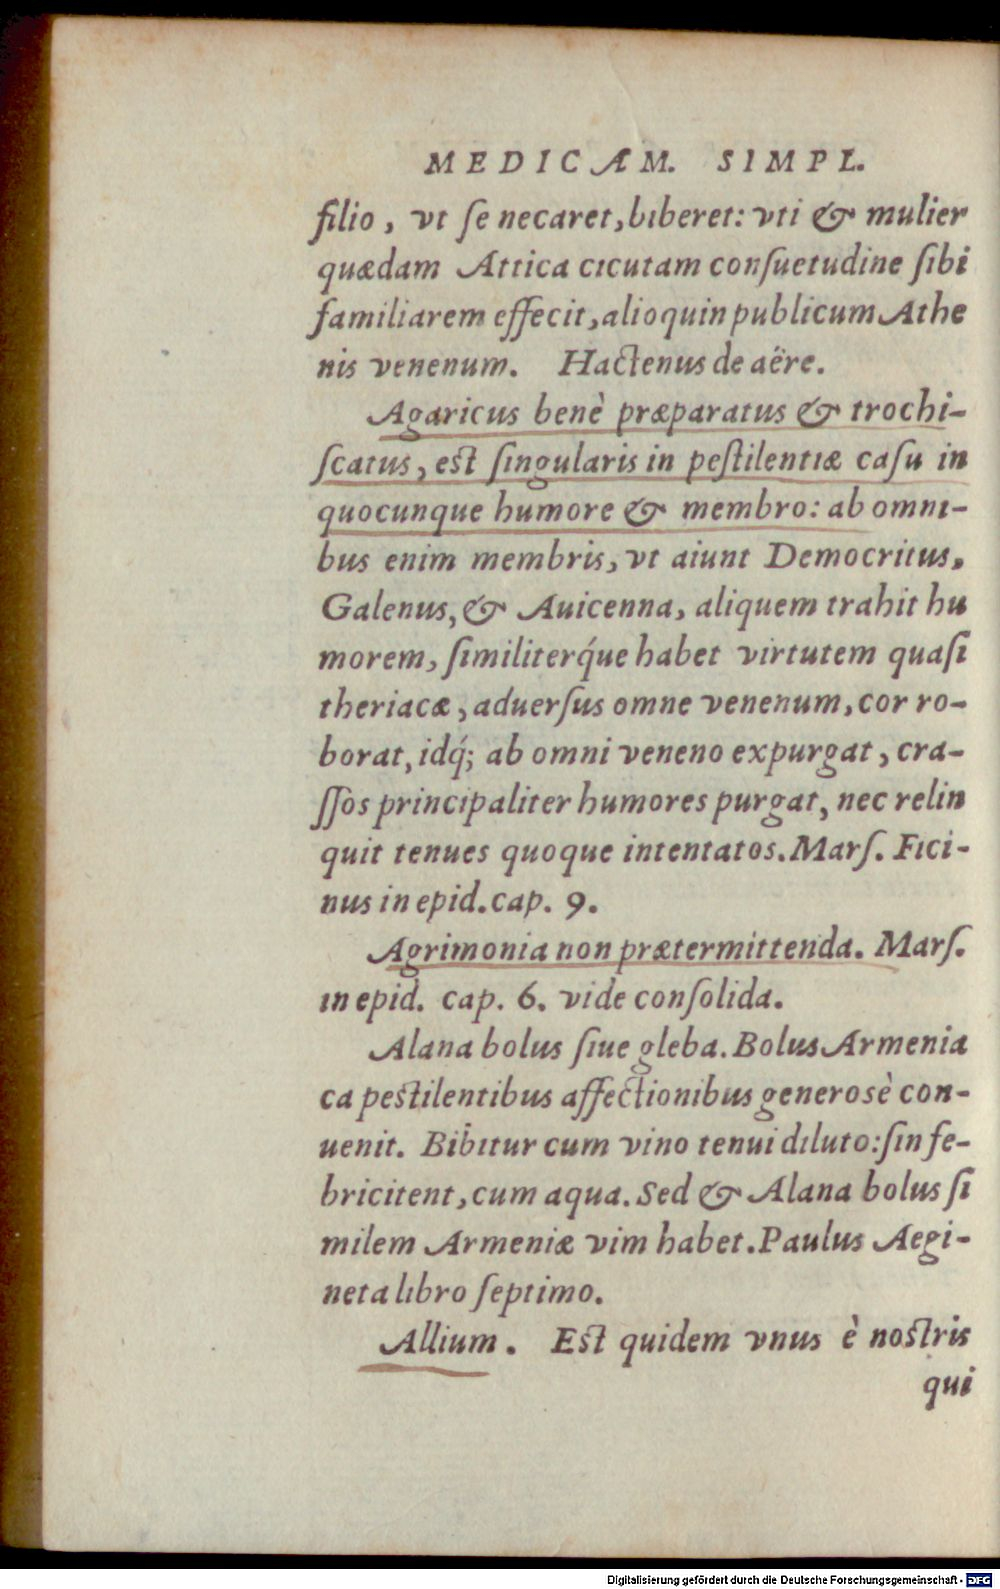 MEDICAM. SIMPL.
filio, vt ſe necaret, biberet: vti & mulier
quædam Attica cicutam conſuetudine ſibi
familiarem effecit, alioquin publicum Athe
nis venenum. Hactenus de aëre.
Agaricus benè præparatus & trochi-
ſcatus, est ſingularis in peſtilentiæ caſu in
quocunque humore & membro: ab omni-
bus enim membris, vt aiunt Democritus,
Galenus, & Auicenna, aliquem trahit hu
morem, ſimiliterq́ue habet virtutem quaſi
theriacæ, aduerſus omne venenum, cor ro-
borat, idq́; ab omni veneno expurgat, cra-
ſſos principaliter humores purgat, nec relin
quit tenues quoque intentatos. Marſ. Fici-
nus in epid. cap. 9.
Agrimonia non prætermittenda. Marſ.
in epid. cap. 6. vide conſolida.
Alana bolus ſiue gleba. Bolus Armenia
ca pestilentibus affectionibus generosè con-
uenit. Bibitur cum vino tenui diluto: ſin fe-
bricitent, cum aqua. Sed & Alana bolus ſi
milem Armeniæ vim habet. Paulus Aegi-
neta libro ſeptimo.
Allium. Est quidem vnus è nostris
qui
Digitalisierung gefördert durch die Deutsche Forschungsgemeinschaft - DFG